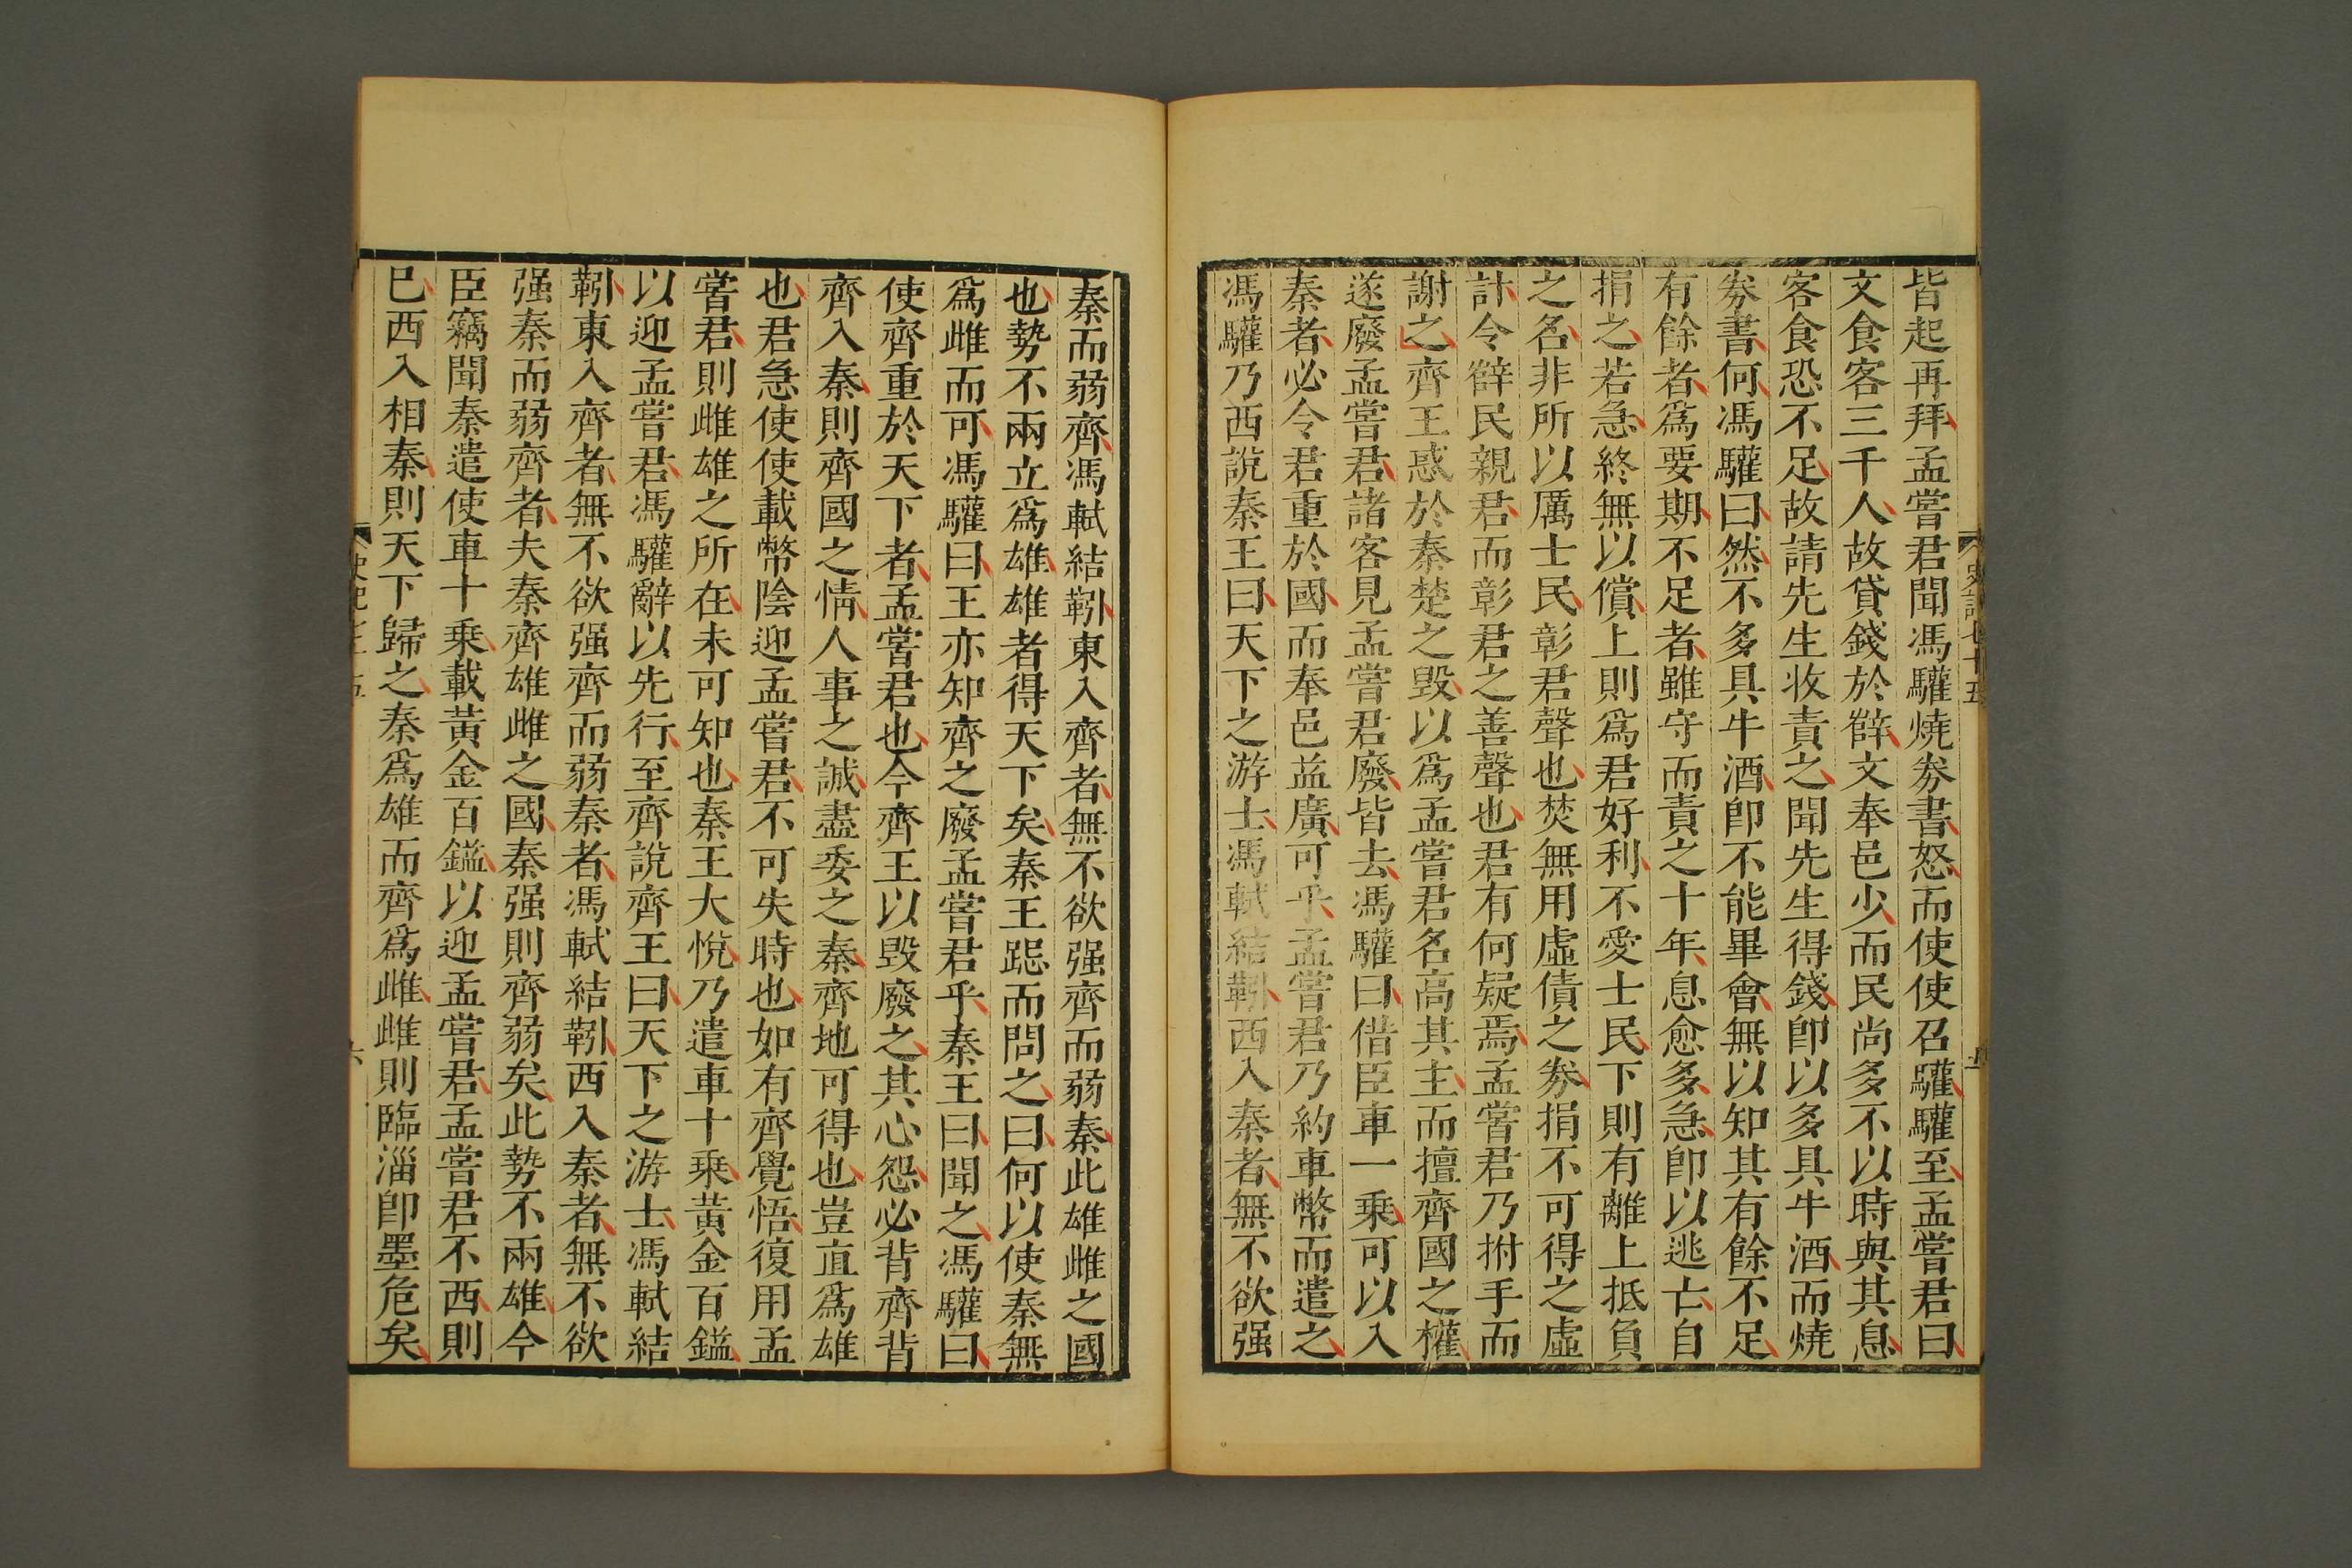 皆起再拜孟嘗君聞馮驩燒券書怒而使使召驩驩至孟嘗君曰
文食客三千人故貸錢於薛文奉邑少而民尚多不以時與其息
客食恐不足故請先生收責之聞先生得錢卽以多具牛酒而燒
券書何馮驩曰然不多具牛酒卽不能畢會無以知其有餘不足
有餘者爲要期不足者雖守而責之十年息愈多急卽以逃亡自
捐之若急終無以償上則爲君好利不愛士民下則有離上抵負
之名非所以厲士民彰君聲也焚無用虛債之券捐不可得之虛
計令薛民親君而彰君之善聲也君有何疑焉孟嘗君乃拊手而
謝之齊王惑於秦楚之毀以爲孟嘗君名高其主而擅齊國之權
遂廢孟嘗君諸客見孟嘗君廢皆去馮驩曰借臣車一乘可以入
秦者必令君重於國而奉邑益廣可乎孟嘗君乃約車幣而遣之
馮驩乃西說秦王曰天下之游士馮軾結靷西入秦者無不欲强
史記七十五
秦而弱齊馮軾結靷東入齊者無不欲强齊而弱秦此雄雌之國
也勢不兩立爲雄雄者得天下矣秦王跽而問之曰何以使秦無
爲雌而可馮驩曰王亦知齊之廢孟嘗君乎秦王曰聞之馮驩曰
使齊重於天下者孟嘗君也今齊王以毀廢之其心怨必背齊背
齊入秦則齊國之情人事之誠盡委之秦齊地可得也豈直爲雄
也君急使使載幣陰迎孟嘗君不可失時也如有齊覺悟復用孟
嘗君則雌雄之所在未可知也秦王大悅乃遣車十乘黃金百鎰
以迎孟嘗君馮驩辭以先行至齊說齊王曰天下之游士馮軾結
靷東入齊者無不欲强齊而弱秦者馮軾結靷西入秦者無不欲
强秦而弱齊者夫秦齊雄雌之國秦强則齊弱矣此勢不兩雄今
臣竊聞秦遣使車十乘載黃金百鎰以迎孟嘗君孟嘗君不西則
已西入相秦則天下歸之秦爲雄而齊爲雌雌則臨淄卽墨危矣